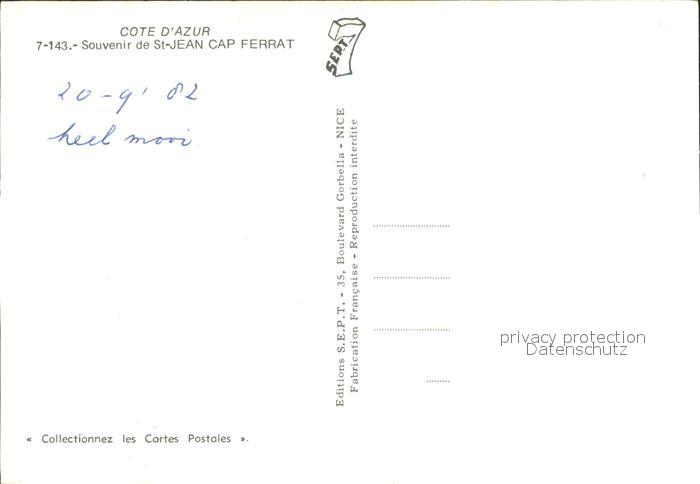 COTE D'AZUR
7-143.- Souvenir de St-JEAN CAP FERRAT
20-9' 82
heel mooi
SEPT
Editions S.E.P.T. - 35, Boulevard Gorbella - NICE
Fabrication Française - Reproduction interdite
privacy protection
Datenschutz
« Collectionnez les Cartes Postales ».